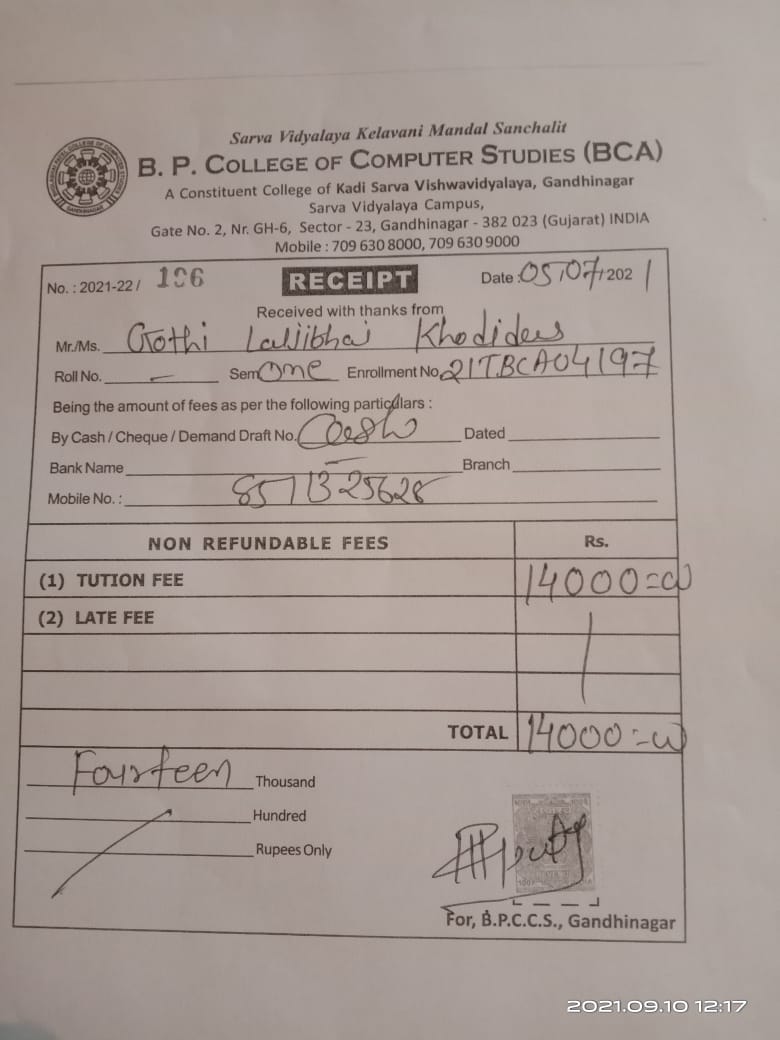 Sarva Vidyalaya Kelavani Mandal Sanchalit
B. P. COLLEGE OF COMPUTER STUDIES (BCA)
A Constituent College of Kadi Sarva Vishwavidyalaya, Gandhinagar
Sarva Vidyalaya Campus,
Gate No. 2, Nr. GH-6, Sector - 23, Gandhinagar - 382 023 (Gujarat) INDIA
Mobile : 709 630 8000, 709 630 9000
No. : 2021-22 / 196 RECEIPT Date : 05/07/2021
Received with thanks from
Mr./Ms. Gothi Laljibhai Khodidas
Roll No. — Sem One Enrollment No. 21TBCA04197
Being the amount of fees as per the following particulars :
By Cash / Cheque / Demand Draft No. Cash Dated
Bank Name — Branch
Mobile No. : 8571325628
NON REFUNDABLE FEES Rs.
(1) TUTION FEE 14000=00
(2) LATE FEE
TOTAL 14000=00
Fourteen Thousand
Hundred
Rupees Only
For, B.P.C.C.S., Gandhinagar
2021.09.10 12:17